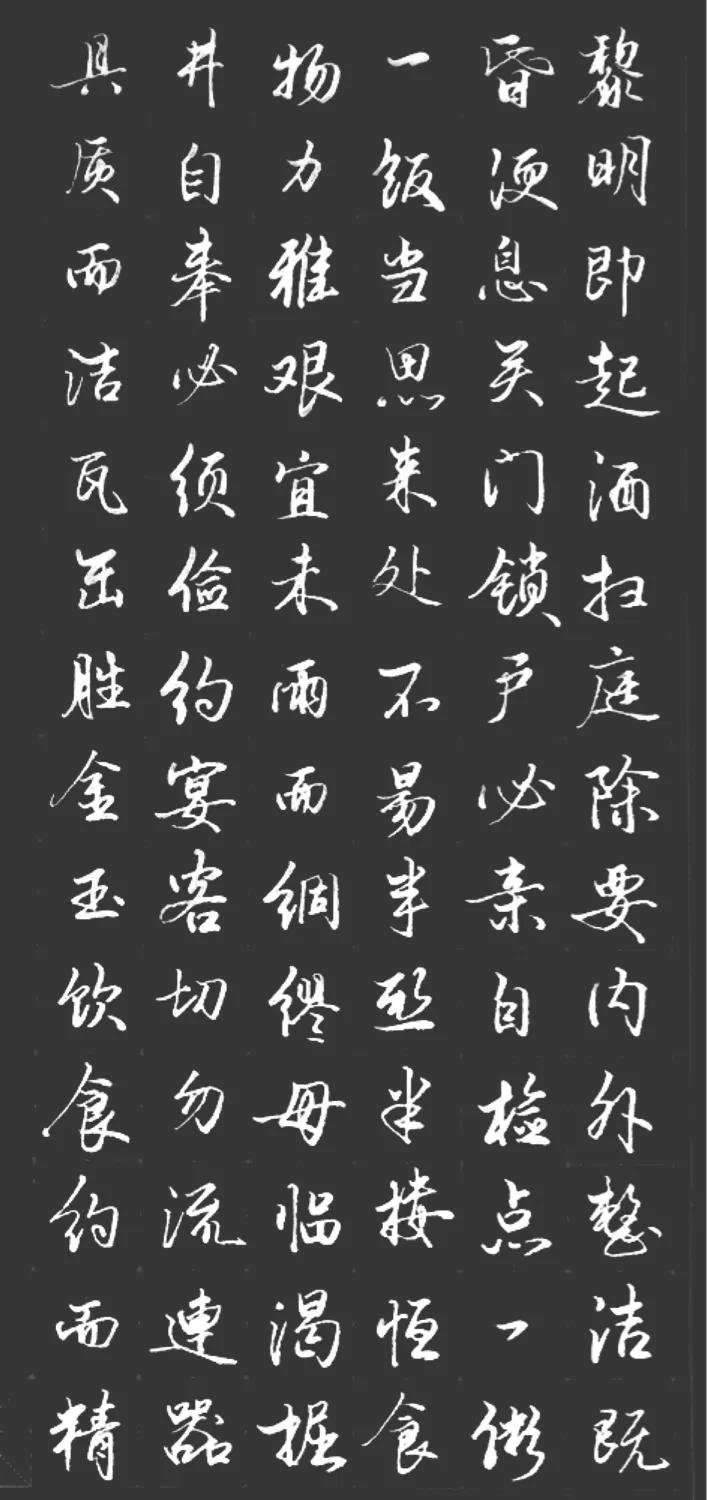 黎明即起洒扫庭除要内外整洁既
昏便息关门锁户必亲自检点一粥
一饭当思来处不易半丝半缕恒念
物力维艰宜未雨而绸缪毋临渴掘
井自奉必须俭约宴客切勿流連器
具质而洁瓦缶胜金玉饮食约而精